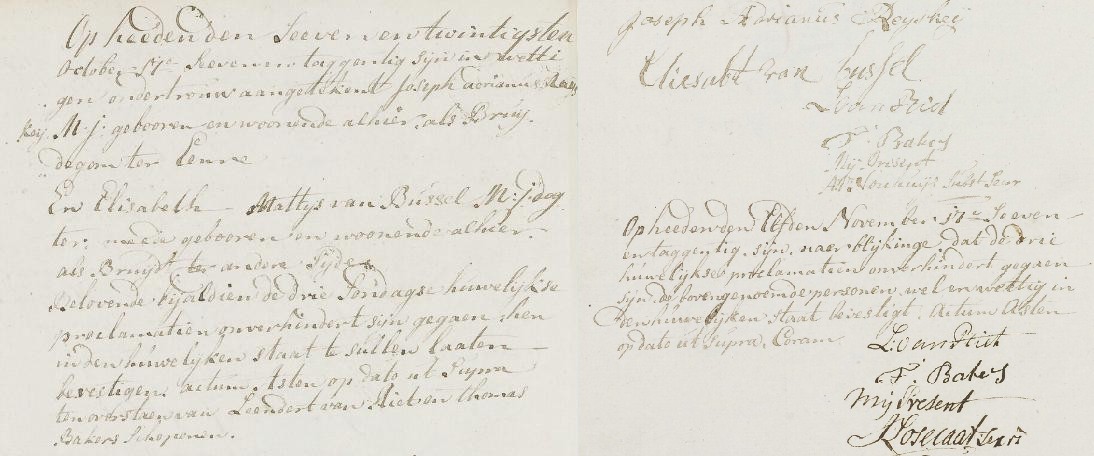 Op heeden den Seeven en twintigsten
October 17e. Seeven en taggentig sijn in wetti
gen ondertrouw aangetekent Joseph Adrianus Reijs
keij M: j: gebooren en woonende alhier, als Bruij-
degom ter Eenre
En Elisabeth Mattijs van Bussel M: j: dog
ter. meede gebooren en woonende alhier
als Bruijdt ter andere Sijde
Belovende bij aldien de drie Sondagse huwelijkse
proclamatien onverhindert sijn gegaen hen
in den huwelijken staat te sullen laaten
bevestigen. Actum Asten op dato ut Supra
ten overstaen van Leendert van Riet en Thomas
Bakers Schepenen.
Joseph Adrianus Reyskeij
Eliesabt van bussel
L van Riet
T. Bakers
Mij Present
Subst Secr
Op heeden den Elfden November 17e Seeven
en taggentig, sijn, naer blijkinge, dat de drie
huwelijkse proclamatien onverhindert gegaen
sijn, de bovengenoemde persoonen, wel en wettig in
Den huwelijken Staat bevestigt. Actum Asten
op dato ut Supra. Coram
L. van Riet
T. Bakers
Mij Present
Losecaat Secrs